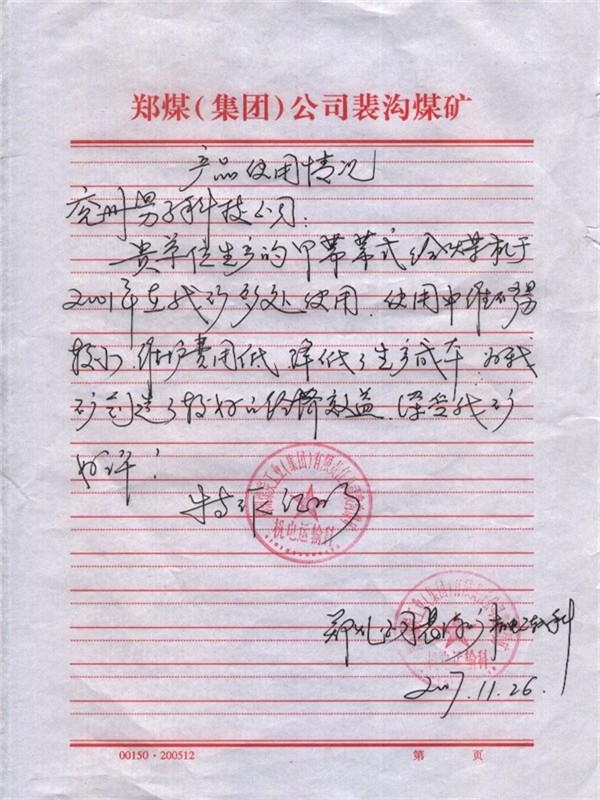 郑煤(集团)公司裴沟煤矿
产品使用情况
兖州男子科技公司:
贵单位生产的甲带式给煤机于
2001年在我矿多处使用.使用中维修量
较小.维护费用低.降低了生产成本.为我
矿创造了较好的经济效益.深受我矿
好评!
特此证明
机电运输科
郑煤公司裴沟矿机电运输科
机电运输科
2007.11.26.
00150·200512
第 页